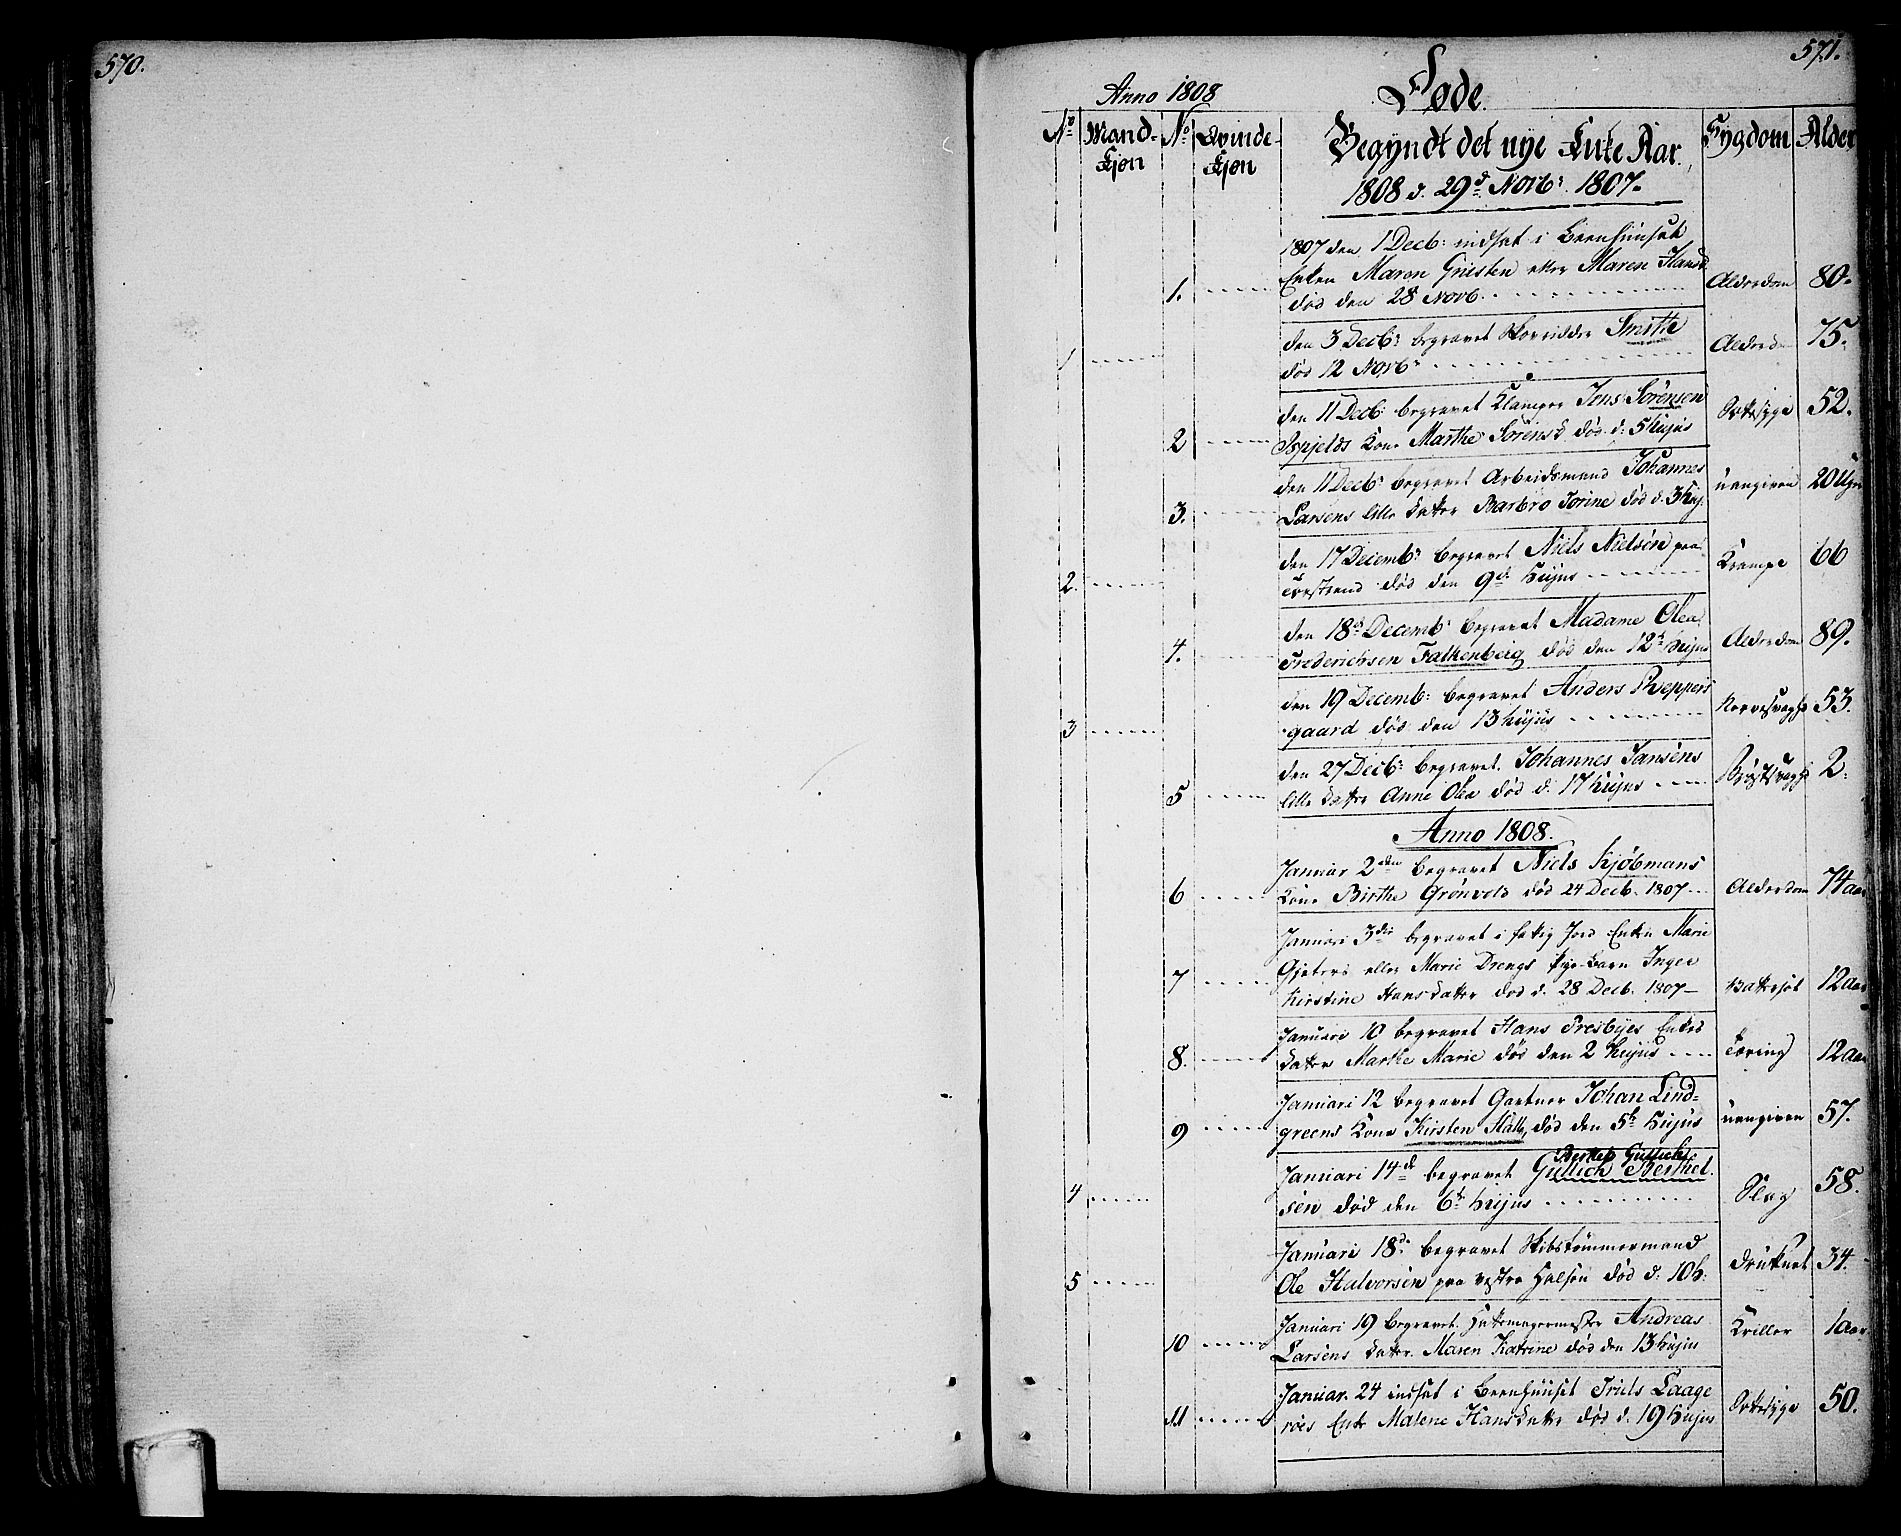 570.
571.
Anno 1808
Døde.
No Mand- Kjøn No Qvinde- Kjøn Begyndt det nye Kirke Aar Sygdom Alder
1808 d. 29d Novb: 1807.
1807 den 1 Decb: indsat i Beenhuuset
1. Enken Maren eller Maren Hansd Alderdom 80.
død den 28 Novb.
1 den 3 Decb: begravet Smith Alderd 75.
død 12 Novb:
den 11 Decb: begravet Klamper Jens Sørensen 52.
2 Kone Marthe Sørensd død d: 5 hujus
den 11 Decb: begravet Arbeidsmand Johannes uangiven 20 Uger
3. Larsens lille datter Barbro Torine død d. 3 huj.
den 17 Decemb: begravet Niels Nielsen paa Krampe 66
2. død den 9d hujus
den 18d Decemb: begravet Madame Olea Alderdom 89.
4. Frederichsen Falkenberg død den 12t hujus
den 19 Decemb: begravet Anders Reppers 53.
3 gaard død den 13 hujus
den 27 Decb: begravet Johannes Jansens Brystsvagh 2.
5 lille datter Anne Olea død d. 17 hujus
Anno 1808.
Januar 2den begravet Niels Kjøbmans
6 Kone Birthe Grønvold død 24 Decb. 1807 Alderdom 74 aar
Januari 3die begravet i fattig Jord Enken Marie
7 Gjeters eller Marie Drengs Pige-Barn Inger 12 aar
Kirstine Hansdatter død d. 28 Decb. 1807
Januari 10 begravet Hans Presbyes Enkes
8. datter Marthe Marie død den 2 hujus Tæring 12 aar
Januari 12 begravet Gartner Johan Lind-
9 greens Kone Kirsten død den 5t hujus uangiven 57.
Berthel Gullichs
Januari 14de begravet Gullich Berthel
4 sen død den 6t hujus Slag 58.
Januari 18de begravet Skibstømmermand druknet 34.
5 Ole Halvorsen paa vestre Halsen død d: 10 h:
Januari 19 begravet Hattemagermester Andreas
10 Larsens datter Maren Katrine død den 13 hujus 1 aar
Januar. 24 indsat i Beenhuuset Truls Laage
11 røes Enke Malene Hansdatter død d. 19 hujus 50.